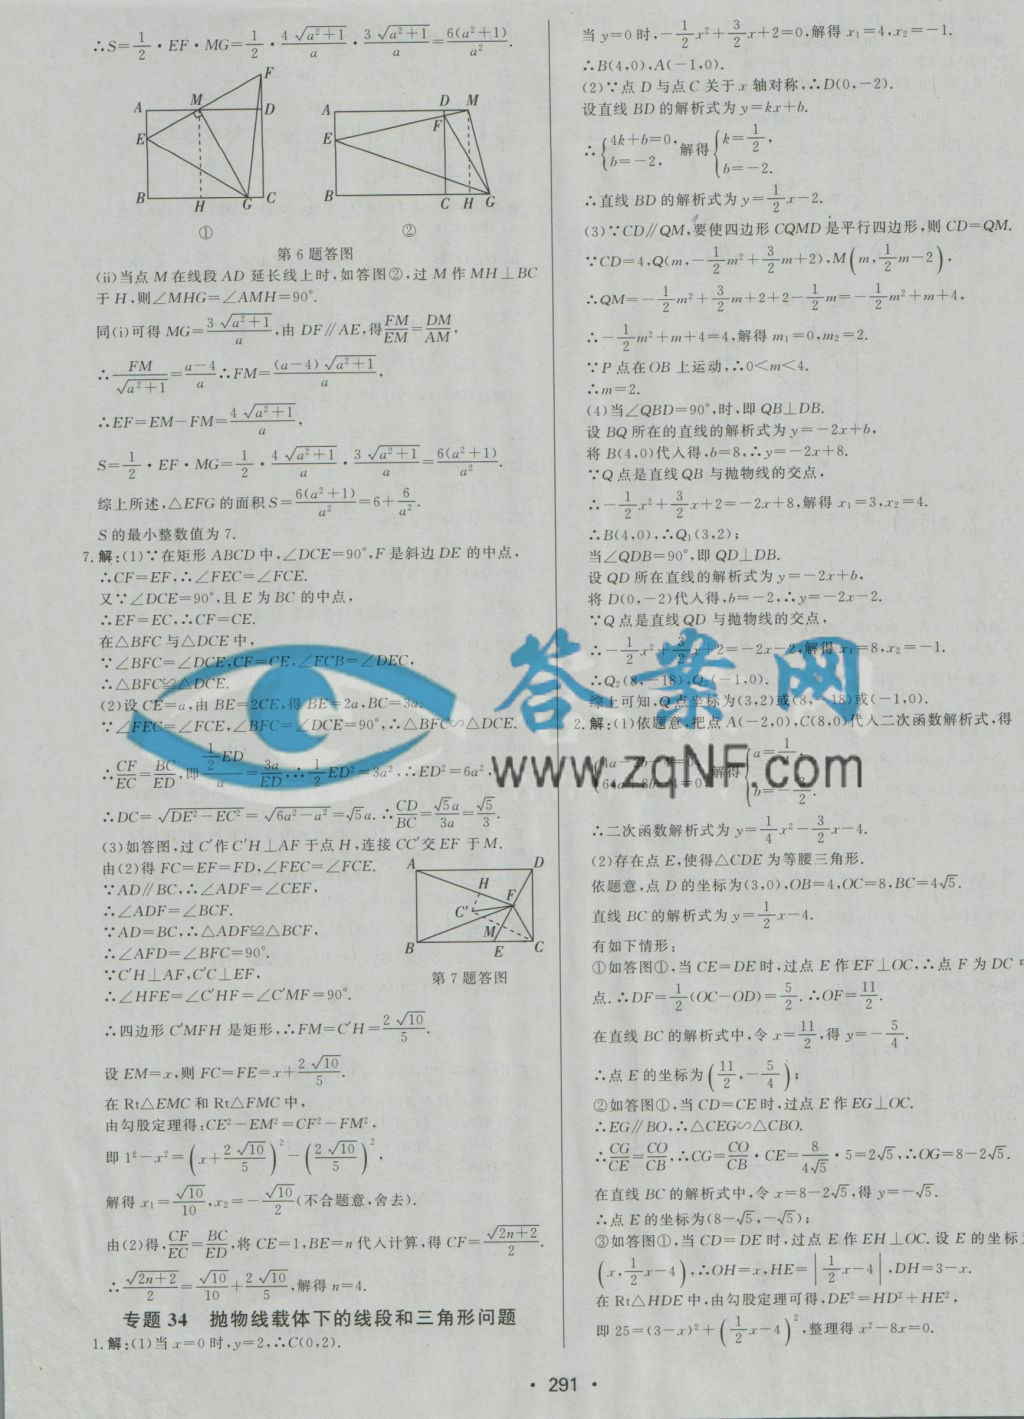 ∴S=1/2·EF·MG=1/2·4√(a²+1)/a·3√(a²+1)/a=6(a²+1)/a².
A M D F E B H G C
①
A D M F E B C H G
②
第6题答图
(ii)当点M在线段AD延长线上时,如答图②,过M作MH⊥BC
于H,则∠MHG=∠AMH=90°.
同(i)可得MG=3√(a²+1)/a,由DF∥AE,得FM/EM=DM/AM,
∴FM/√(a²+1)=(a-4)/a∴FM=(a-4)√(a²+1)/a,
∴EF=EM-FM=4√(a²+1)/a,
S=1/2·EF·MG=1/2·4√(a²+1)/a·3√(a²+1)/a=6(a²+1)/a².
综上所述,△EFG的面积S=6(a²+1)/a²=6+6/a².
S的最小整数值为7.
7.解:(1)∵在矩形ABCD中,∠DCE=90°,F是斜边DE的中点,
∴CF=EF,∴∠FEC=∠FCE.
又∵∠DCE=90°,且E为BC的中点,
∴EF=EC,∴CF=CE.
在△BFC与△DCE中,
∵∠BFC=∠DCE,CF=CE,∠FCB=∠DEC,
∴△BFC≌△DCE.
(2)设CE=a,由BE=2CE,得BE=2a,BC=3a.
∵∠FEC=∠FCE,∠BFC=∠DCE=90°,∴△BFC∽△DCE.
∴CF/EC=BC/ED,即(1/2 ED)/a=3a/ED∴1/2ED²=3a²,∴ED²=6a²,
∴DC=√(DE²-EC²)=√(6a²-a²)=√5a.∴CD/BC=√5a/3a=√5/3.
(3)如答图,过C′作C′H⊥AF于点H,连接CC′交EF于M.
由(2)得FC=EF=FD,∠FEC=∠FCE.
∵AD∥BC,∴∠ADF=∠CEF,
∴∠ADF=∠BCF.
∵AD=BC,∴△ADF≌△BCF,
∴∠AFD=∠BFC=90°.
∵C′H⊥AF,C′C⊥EF,
∴∠HFE=∠C′HF=∠C′MF=90°.
A D H F C′ M B E C
第7题答图
∴四边形C′MFH是矩形,∴FM=C′H=2√10/5.
设EM=x,则FC=FE=x+2√10/5.
在Rt△EMC和Rt△FMC中,
由勾股定理得:CE²-EM²=CF²-FM²,
即1²-x²=(x+2√10/5)²-(2√10/5)²,
解得x₁=√10/10,x₂=-√10/2(不合题意,舍去).
由(2)得,CF/EC=BC/ED,将CE=1,BE=n代入计算,得CF=√(2n+2)/2.
∴√(2n+2)/2=√10/10+2√10/5,解得n=4.
专题34 抛物线载体下的线段和三角形问题
1.解:(1)当x=0时,y=2,∴C(0,2).
当y=0时,-1/2x²+3/2x+2=0,解得x₁=4,x₂=-1.
∴B(4,0),A(-1,0).
(2)∵点D与点C关于x轴对称,∴D(0,-2).
设直线BD的解析式为y=kx+b.
∴{4k+b=0, b=-2, 解得{k=1/2, b=-2.
∴直线BD的解析式为y=1/2x-2.
(3)∵CD∥QM,要使四边形CQMD是平行四边形,则CD=QM.
∵CD=4,Q(m,-1/2m²+3/2m+2),M(m,1/2m-2),
∴QM=-1/2m²+3/2m+2+2-1/2m=-1/2m²+m+4,
∴-1/2m²+m+4=4,解得m₁=0,m₂=2.
∵P点在OB上运动,∴0<m<4.
∴m=2.
(4)当∠QBD=90°,时,即QB⊥DB.
设BQ所在的直线的解析式为y=-2x+b,
将B(4,0)代入得,b=8,∴y=-2x+8.
∵Q点是直线QB与抛物线的交点,
∴-1/2x²+3/2x+2=-2x+8,解得x₁=3,x₂=4.
∴B(4,0),∴Q₁(3,2);
当∠QDB=90°,即QD⊥DB.
设QD所在直线的解析式为y=-2x+b,
将D(0,-2)代入得,b=-2,∴y=-2x-2.
∵Q点是直线QD与抛物线的交点,
∴-1/2x²+3/2x+2=-2x-2,解得x₁=8,x₂=-1.
∴Q₂(8,-18),Q₃(-1,0).
综上可知,Q点坐标为(3,2)或(8,-18)或(-1,0).
2.解:(1)依题意,把点A(-2,0),C(8,0)代入二次函数解析式,得
解得
∴二次函数解析式为y=1/4x²-3/2x-4.
(2)存在点E,使得△CDE为等腰三角形.
依题意,点D的坐标为(3,0),OB=4,OC=8,BC=4√5.
直线BC的解析式为y=1/2x-4.
有如下情形:
①如答图①,当CE=DE时,过点E作EF⊥OC,∴点F为DC中
点.∴DF=1/2(OC-OD)=5/2.∴OF=11/2.
在直线BC的解析式中,令x=11/2,得y=-5/4.
∴点E的坐标为(11/2,-5/4);
②如答图①,当CD=CE时,过点E作EG⊥OC.
∴EG∥BO,∴△CEG∽△CBO.
∴CG/CE=CO/CB,∴CG=CO/CB·CE=8/4√5·5=2√5,∴OG=8-2√5.
在直线BC的解析式中,令x=8-2√5,得y=-√5.
∴点E的坐标为(8-√5,-√5);
③如答图①,当CD=DE时,过点E作EH⊥OC.设E的坐标
(x,1/2x-4),∴OH=x,HE=|1/2x-4|,DH=3-x.
在Rt△HDE中,由勾股定理可得,DE²=HD²+HE²,
即25=(3-x)²+(1/2x-4)²,整理得x²-8x=0.
·291·
答案网
www.zqNF.com